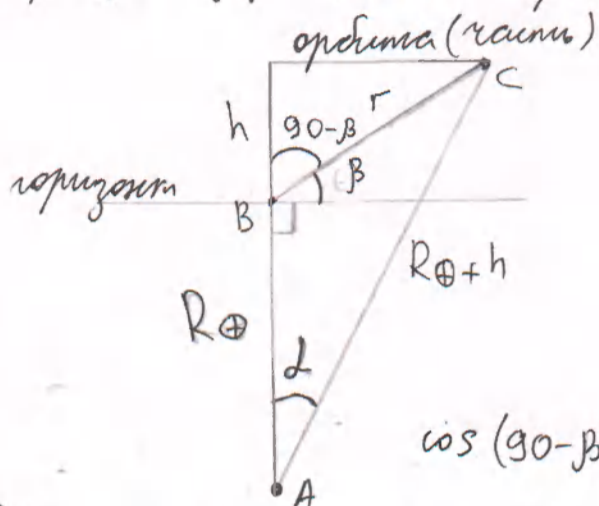 орбита (часть)
C
h
90-β
r
β
горизонт
B
R⊕
R⊕+h
α
cos (90-β
A